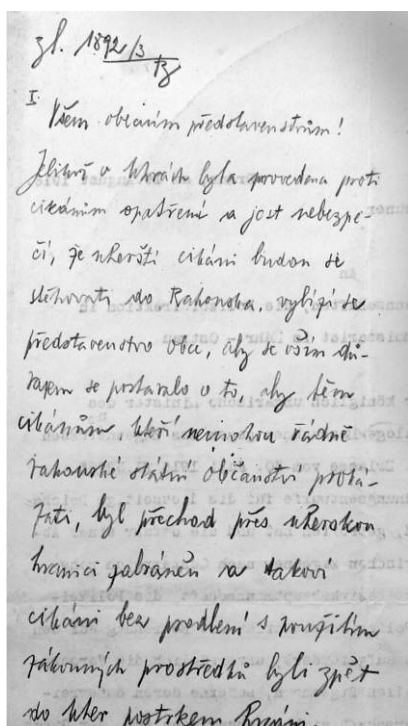 I.
Všem obecním představenstvům!
Jelikož v Uhrách byla provedena proti
cikánům opatření a jest nebezpe-
čí, že uherští cikáni budou se
stěhovati do Rakouska, vybízí se
představenstvo obce, aby se vším dů-
razem se postaralo o to, aby těm
cikánům, kteří nemohou řádně
rakouské státní občanství proká-
zati, byl přechod přes uherskou
hranici zabráněn a takoví
cikáni bez prodlení s použitím
zákonných prostředků byli zpět
do Uher postrkem hnáni.